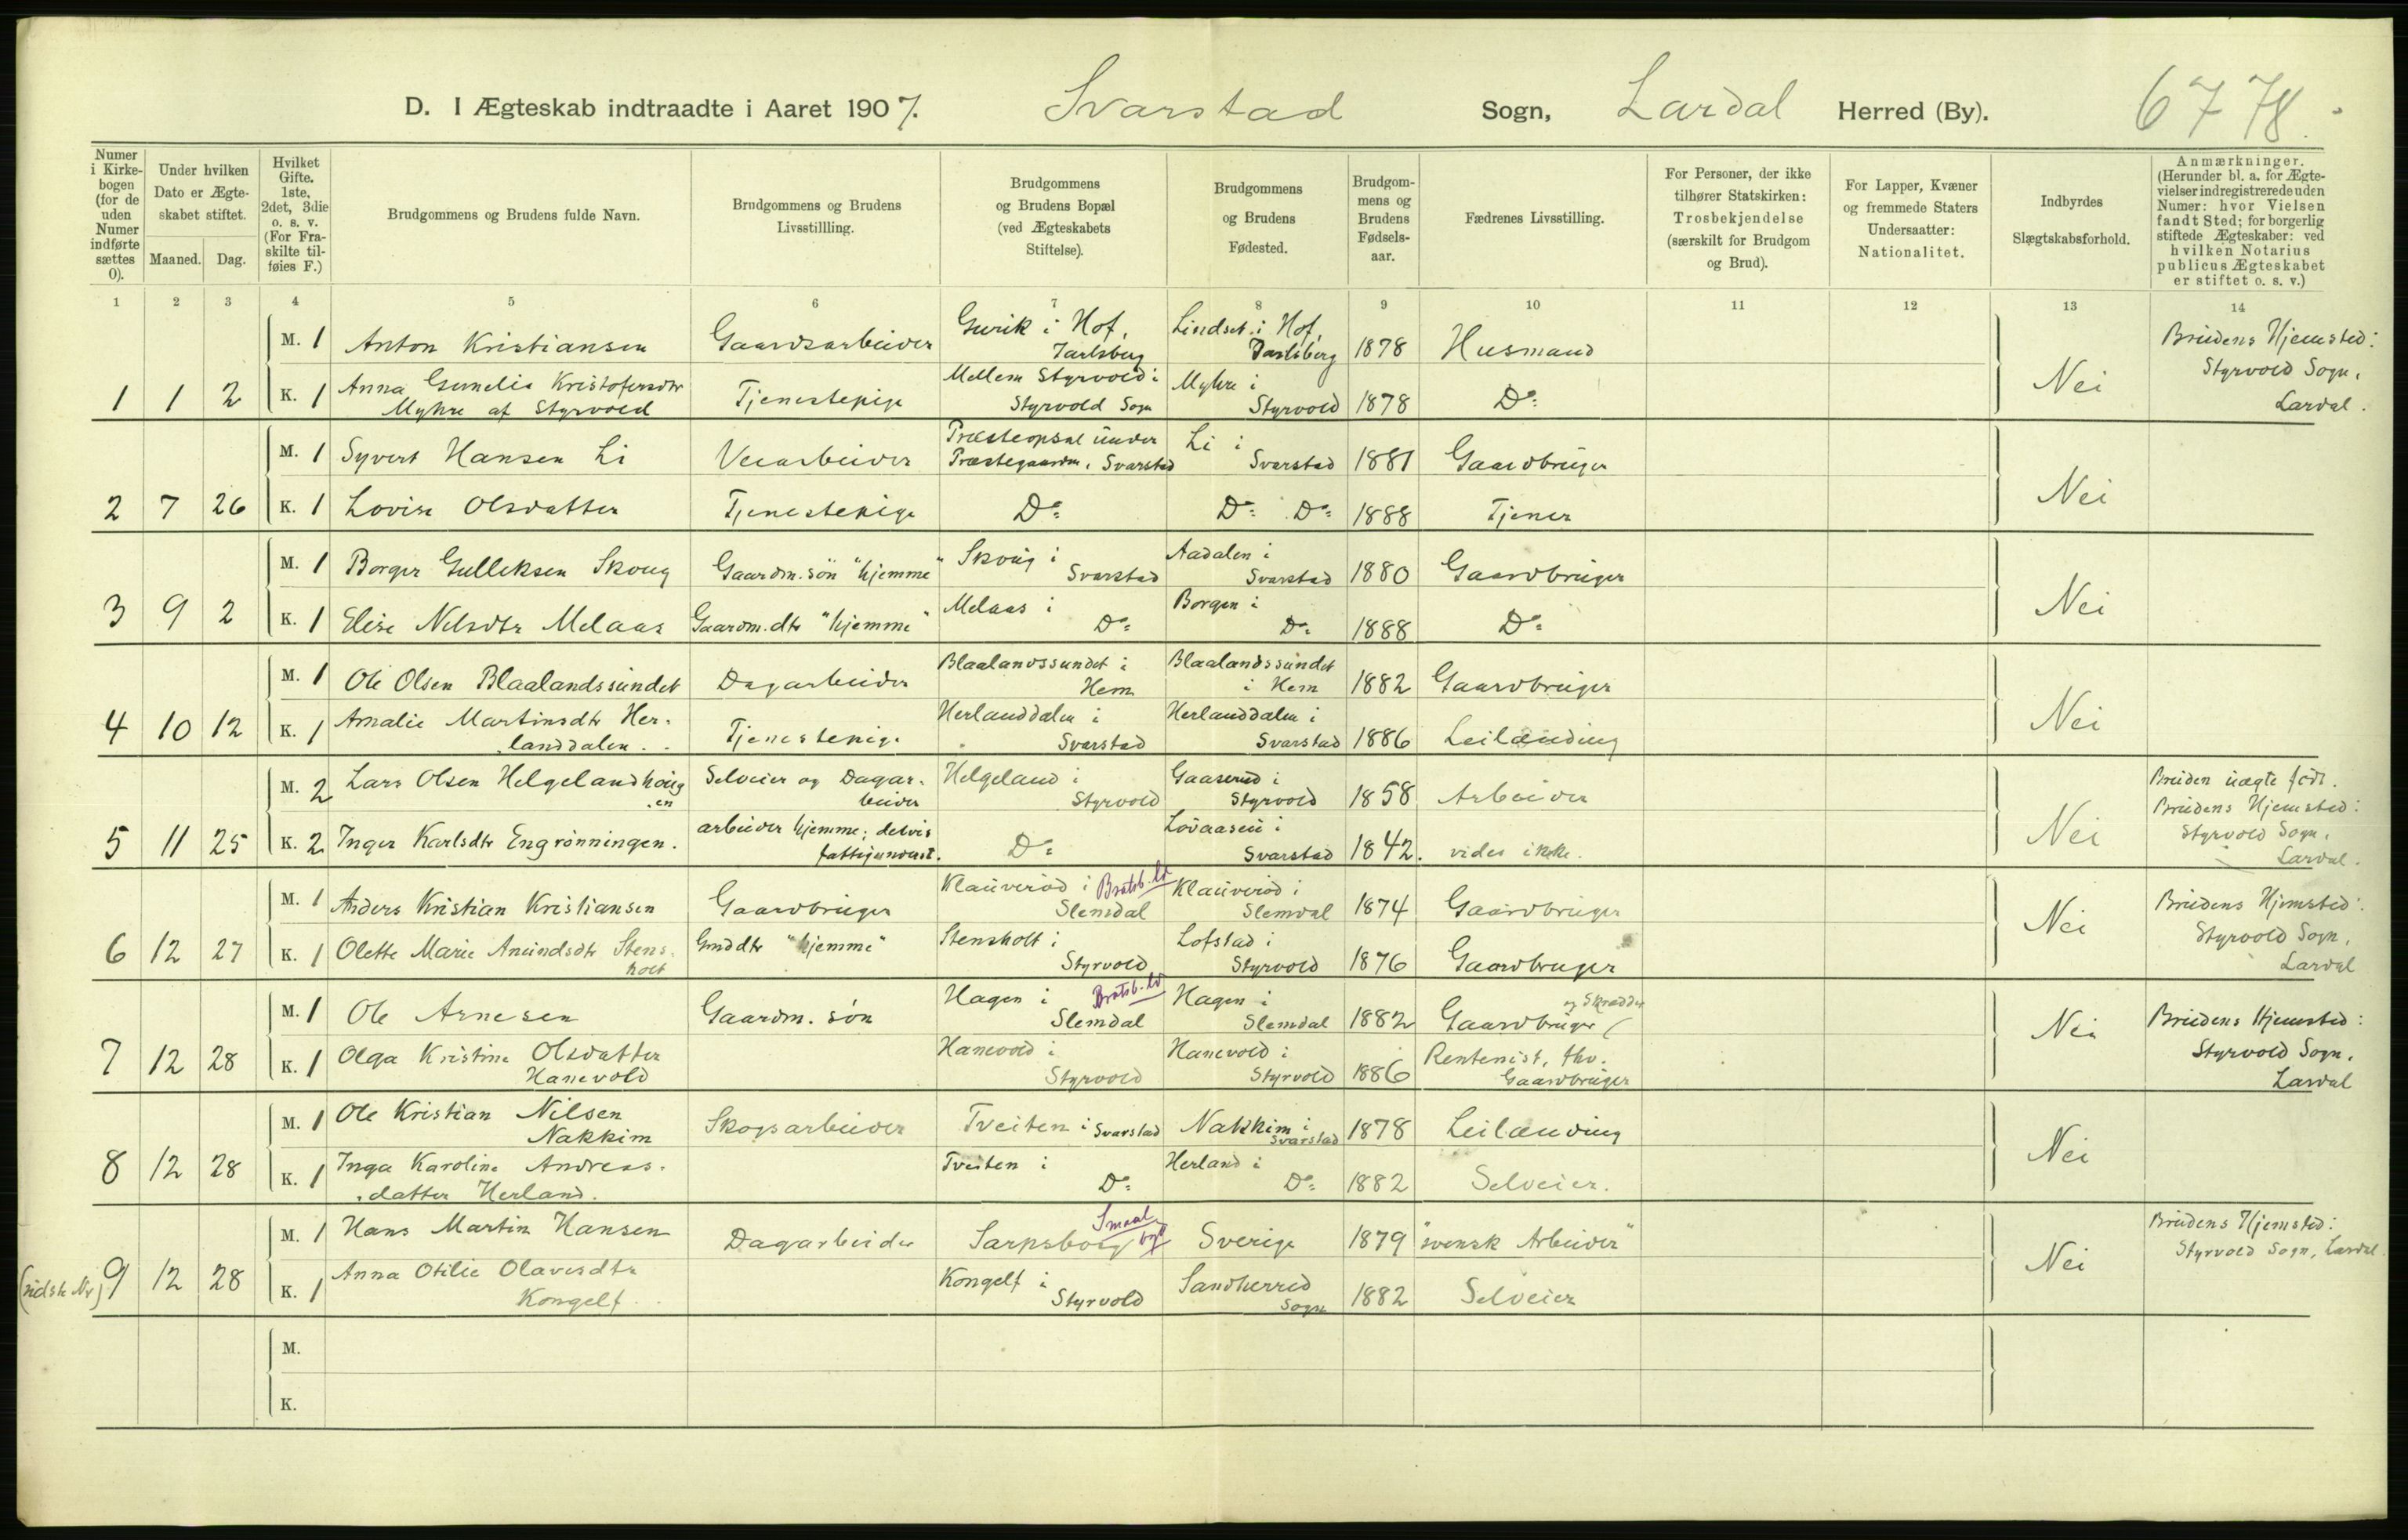 D. I Ægteskab indtraadte i Aaret 1907. Svarstad Sogn, Lardal Herred (By). 6778.
Numer i Kirkebogen (for de uden Numer indførte sættes 0).
Under hvilken Dato er Ægteskabet stiftet.
Maaned. Dag.
Hvilket Gifte. 1ste, 2det, 3die o. s. v. (For Fraskilte tilføies F.)
Brudgommens og Brudens fulde Navn.
Brudgommens og Brudens Livsstillling.
Brudgommens og Brudens Bopæl (ved Ægteskabets Stiftelse).
Brudgommens og Brudens Fødested.
Brudgommens og Brudens Fødselsaar.
Fædrenes Livsstilling.
For Personer, der ikke tilhører Statskirken: Trosbekjendelse (særskilt for Brudgom og Brud).
For Lapper, Kvæner og fremmede Staters Undersaatter: Nationalitet.
Indbyrdes Slægtskabsforhold.
Anmærkninger. (Herunder bl. a. for Ægtevielser indregistrerede uden Numer: hvor Vielsen fandt Sted; for borgerlig stiftede Ægteskaber: ved hvilken Notarius publicus Ægteskabet er stiftet o. s. v.)
1 2 3 4 5 6 7 8 9 10 11 12 13 14
M. 1 Anton Kristiansen Gaardsarbeider Gurik i Hof, Jarlsberg Lindset i Hof, Jarlsberg 1878 Husmand
1 1 2 K. 1 Anna Gunelie Kristofersdtr Myhre af Styrvold Tjenestepige Mellem Styrvold i Styrvold Sogn Myhre i Styrvold 1878 Do: Nei Brudens Hjemsted: Styrvold Sogn, Lardal.
M. 1 Syvert Hansen Li Veiarbeider Præsteopsal under Præstegaarden, Svarstad Li i Svarstad 1881 Gaardbruger
2 7 26 K. 1 Lovise Olsdatter Tjenestepige Do: Do: Do: 1888 Tjener Nei
M. 1 Borger Gulleksen Skoug Gaardm. søn "hjemme" Skoug i Svarstad Aadalen i Svarstad 1880 Gaardbruger
3 9 2 K. 1 Elise Nilsdtr Melaas Gaardm. dtr "hjemme" Melaas i Do: Borgen i Do: 1888 Do: Nei
M. 1 Ole Olsen Blaalandssundet Dagarbeider Blaalandssundet i Hem Blaalandssundet i Hem 1882 Gaardbruger
4 10 12 K. 1 Amalie Martinsdtr Herlanddalen. Tjenestepige Herlanddalen i Svarstad Herlanddalen i Svarstad 1886 Leilænding Nei
M. 2 Lars Olsen Helgelandhougen Selveier og Dagarbeider Helgeland i Styrvold Gaaserud i Styrvold 1858 Arbeider
5 11 25 K. 2 Inger Karlsdtr Engrønningen. arbeider hjemme; delvis fattigunderst. Do: Lovaasen i Svarstad 1842. vides ikke. Nei Bruden uægte født. Brudens Hjemsted: Styrvold Sogn, Lardal.
M. 1 Anders Kristian Kristiansen Gaardbruger Klauverød i Bratsb. Slemdal Klauverød i Slemdal 1874 Gaardbruger
6 12 27 K. 1 Olette Marie Amundsdtr Stensholt Gmddtr "hjemme" Stensholt i Styrvold Lofstad i Styrvold 1876 Gaardbruger Nei Brudens Hjemsted: Styrvold Sogn, Lardal
M. 1 Ole Arnesen Gaardm. søn Hagen i Bratsb. Slemdal Hagen i Slemdal 1882 Gaardbruger og Skrædder
7 12 28 K. 1 Olga Kristine Olsdatter Hanevold Hanevold i Styrvold Hanevold i Styrvold 1886 Rentenist, fhv. Gaardbruger Nei Brudens Hjemsted: Styrvold Sogn, Lardal
M. 1 Ole Kristian Nilsen Nakkim Skogsarbeider Tveiten i Svarstad Nakkim i Svarstad 1878 Leilænding
8 12 28 K. 1 Inga Karoline Andreasdatter Herland. Tveiten i Do: Herland i Do: 1882 Selveier. Nei
M. 1 Hans Martin Hansen Dagarbeider Sarpsborg Smaal. Sverige 1879 "svensk Arbeider"
(sidste Nr) 9 12 28 K. 1 Anna Otilie Olavesdtr Kongelf. Kongelf i Styrvold Sandherred Sogn 1882 Selveier Nei Brudens Hjemsted: Styrvold Sogn, Lardal.
M.
K.